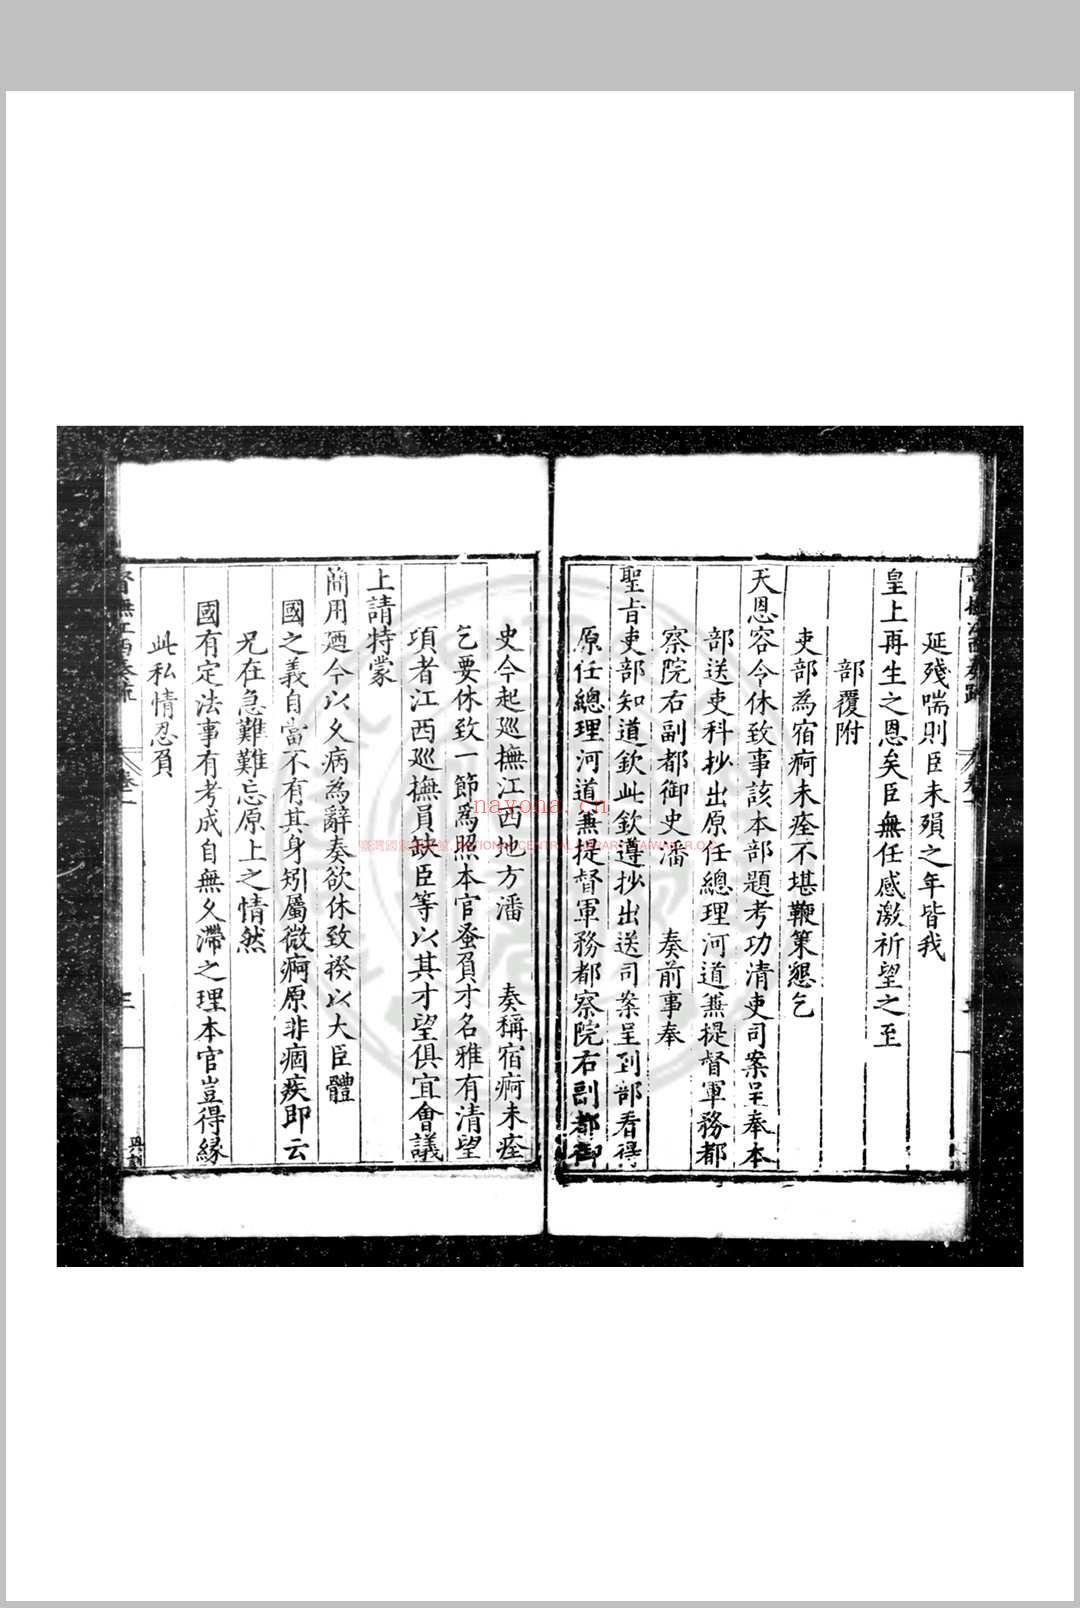 延殘喘則臣未殞之年皆我
皇上再生之恩矣臣無任感激祈望之至
部覆附
吏部為宿痾未痊不堪鞭策懇乞
天恩容令休致事該本部題考功清吏司案呈奉本
部送吏科抄出原任總理河道兼提督軍務都
察院右副都御史潘　奏前事奉
聖旨吏部知道欽此欽遵抄出送司案呈到部看得
原任總理河道兼提督軍務都察院右副都御
史今起巡撫江西地方潘　奏稱宿痾未痊
乞要休致一節為照本官蚤負才名雅有清望
項者江西巡撫員缺臣等以其才望俱宜會議
上請特蒙
簡用廼今以久病為辭奏欲休致揆以大臣體
國之義自當不有其身矧屬微痾原非痼疾即云
兄在急難難忘原上之情然
國有定法事有考成自無久滯之理本官豈得緣
此私情忍負
督撫江西奏疏
卷一
三
nayona.cn
NATIONAL CENTRAL LIBRARY, TAIWAN, R.O.C